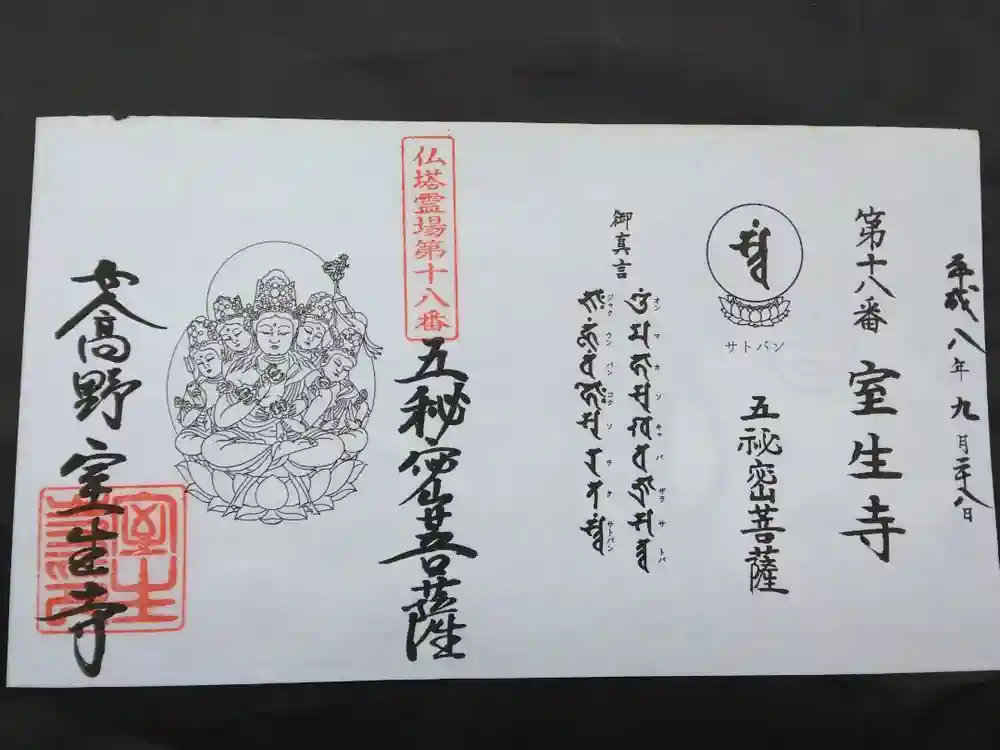 平成八年九月二十八日
第十八番 室生寺
サトバン
五秘密菩薩
御真言
オン マ カ ソ キャ バ ザラ サ トバ
ジャク ウン バン コク ソ ラ タ サトバン
仏塔霊場第十八番
五秘密菩薩
女人高野 室生寺